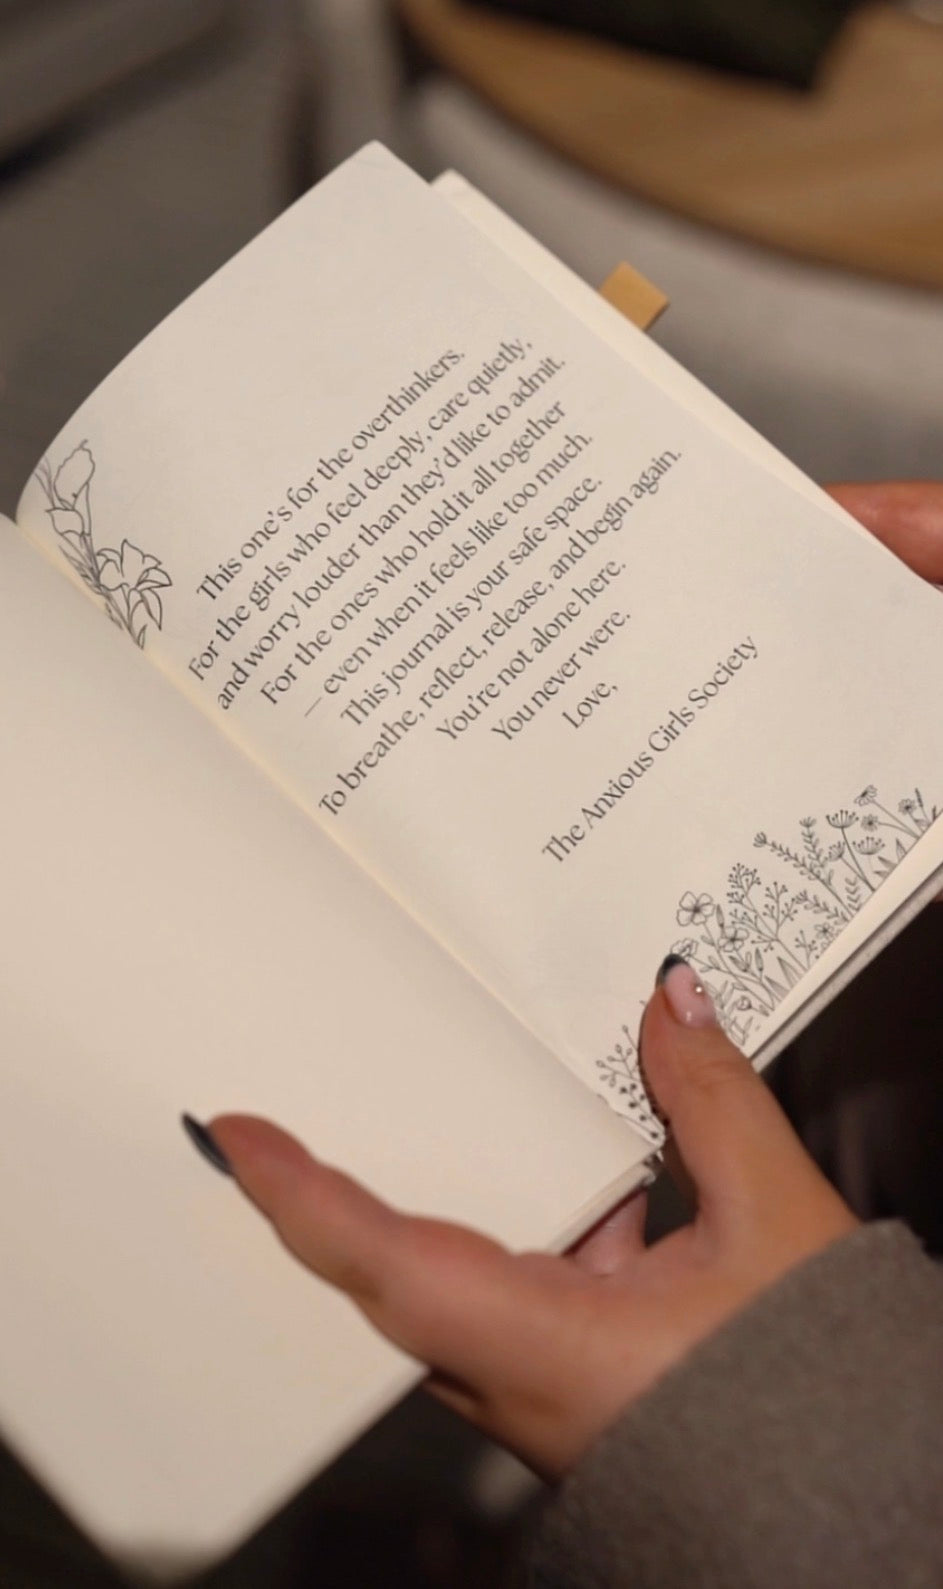 This one's for the overthinkers.
For the girls who feel deeply, care quietly,
and worry louder than they'd like to admit.
For the ones who hold it all together
— even when it feels like too much.
This journal is your safe space.
To breathe, reflect, release, and begin again.
You're not alone here.
You never were.
Love,
The Anxious Girls Society